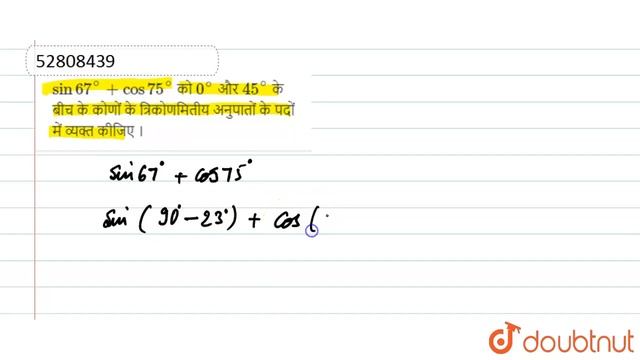 52808439
sin 67° + cos 75° को 0° और 45° के
बीच के कोणों के त्रिकोणमितीय अनुपातों के पदों
में व्यक्त कीजिए ।
sin 67° + cos 75°
sin ( 90° - 23° ) + cos (
doubtnut